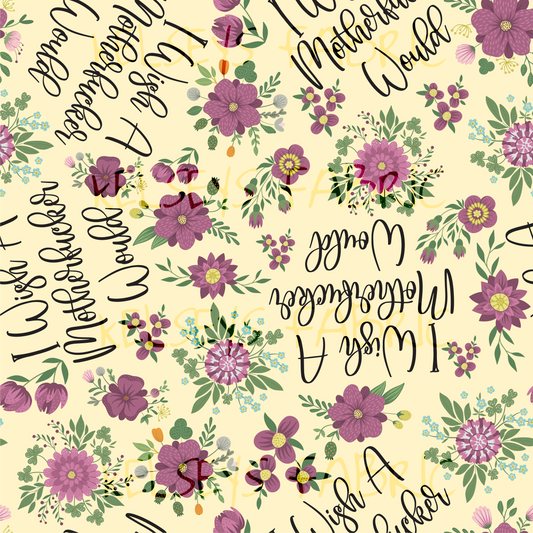 I Wish A
Motherfucker
Would
I Wish A
Motherfucker
Would
KELSEYS FABRIC
KELSEYS FABRIC
I Wish A
Motherfucker
Would
I Wish A
Motherfucker
Would
KELSEYS FABRIC
KELSEYS FABRIC
I Wish A